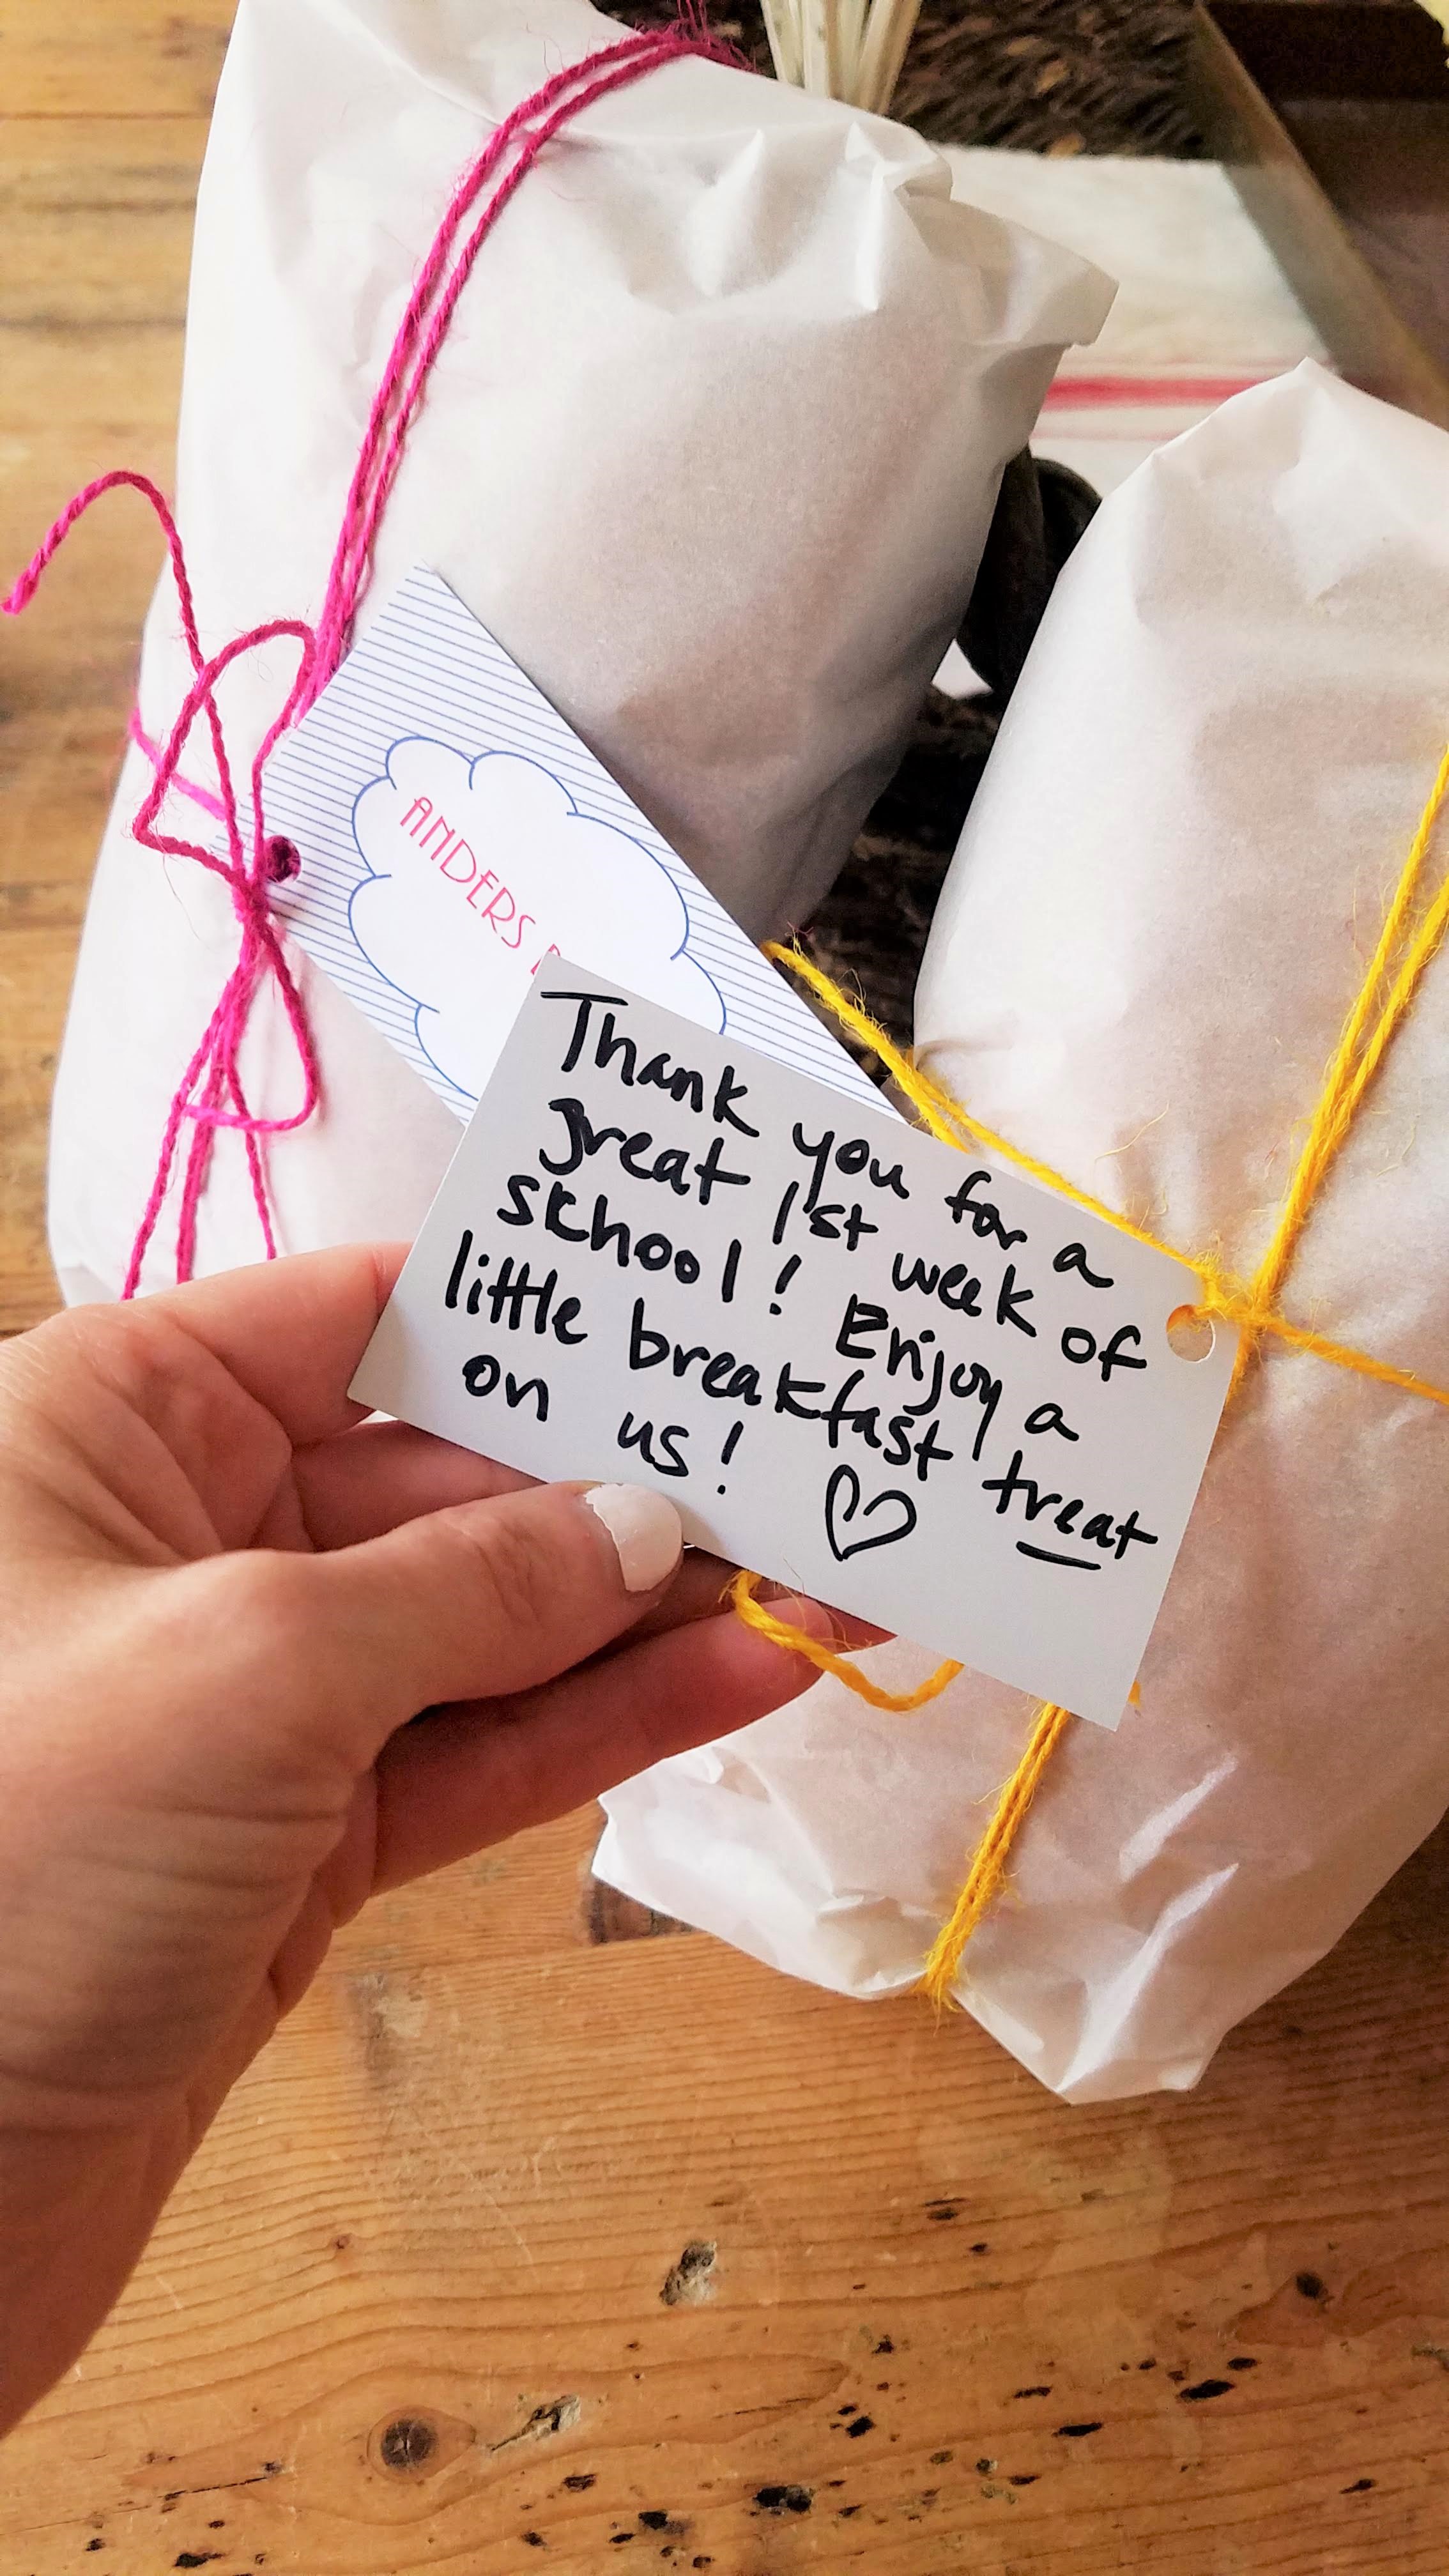 ANDERS
Thank you for a
great 1st week of
school! Enjoy a
little breakfast treat
on us! ♡